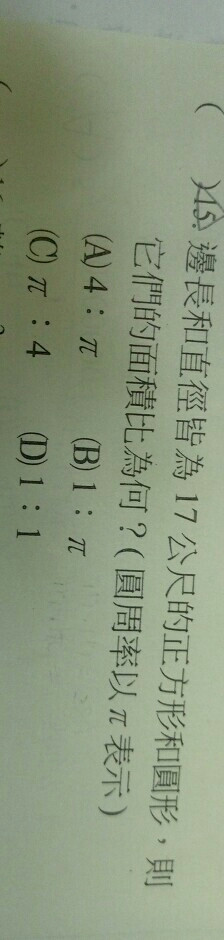 ( )15. 邊長和直徑皆為 17 公尺的正方形和圓形，則
它們的面積比為何？( 圓周率以 π 表示 )
(A) 4：π (B) 1：π
(C) π：4 (D) 1：1